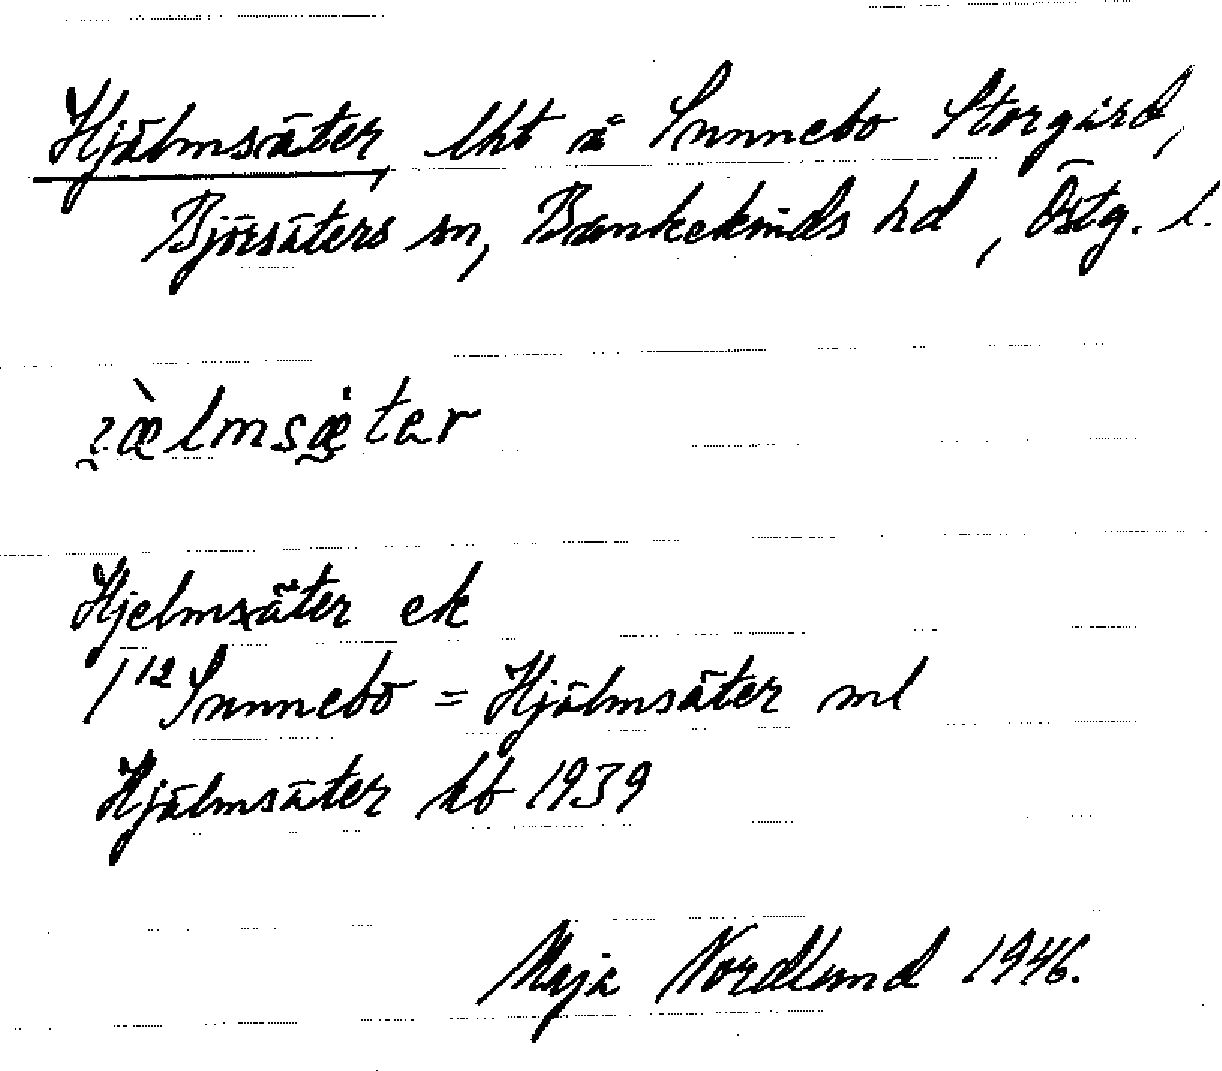 Hjälmsäter, lht å Sunnebo Storgård,
Björsäters sn, Bankekinds hd, Östg. l.
Hjelmsäter ek
1/12 Sunnebo = Hjälmsäter ml
Hjälmsäter kb 1939
Maja Nordlund 1946.